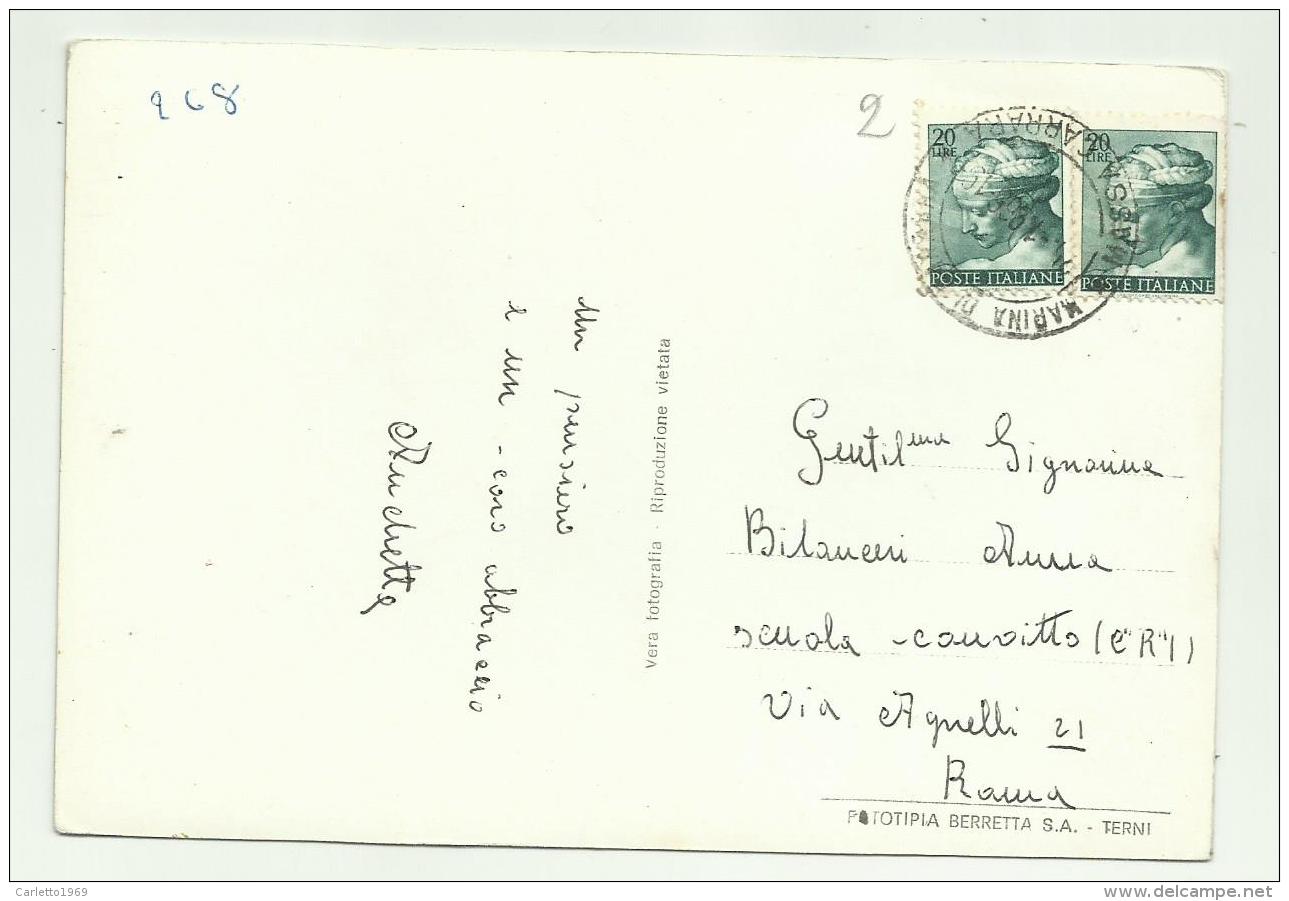 968
2
20
LIRE
POSTE ITALIANE
20
LIRE
POSTE ITALIANE
MARINA DI CARRARA
MASSA
Un pensiero
e un caro abbraccio
Vera fotografia - Riproduzione vietata
Gentil.ma Signorina
Bilanceri Anna
scuola-convitto (C"R"I)
Via Agnelli 21
Roma
FOTOTIPIA BERRETTA S.A. - TERNI
Carletto1969
delcampe.net